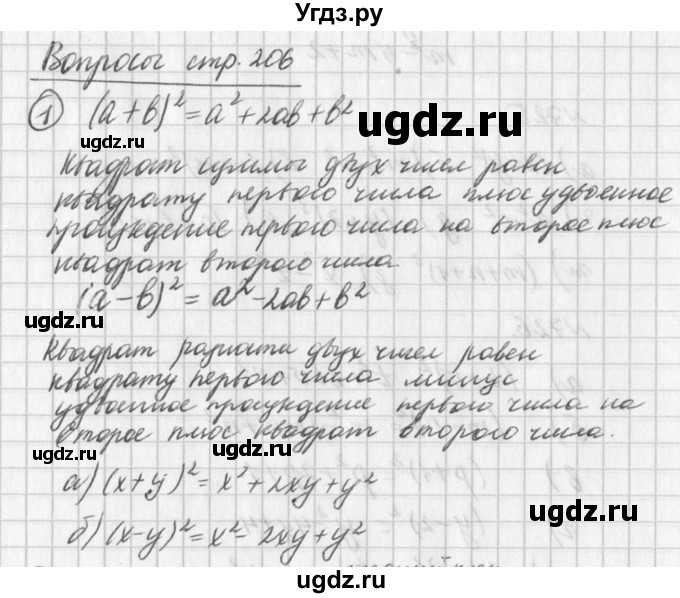 Угдз.ру
Вопросы стр. 206
① (a+b)² = a²+2ab+b²
Квадрат суммы двух чисел равен
квадрату первого числа плюс удвоенное
произведение первого числа на второе плюс
квадрат второго числа.
(a-b)² = a²-2ab+b²
Квадрат разности двух чисел равен
квадрату первого числа минус
удвоенное произведение первого числа на
второе плюс квадрат второго числа.
а) (x+y)² = x²+2xy+y²
б) (x-y)² = x²-2xy+y²
ugdz.ru
ugdz.ru
ugdz.ru
ugdz.ru
ugdz.ru
ugdz.ru
ugdz.ru
ugdz.ru
ugdz.ru